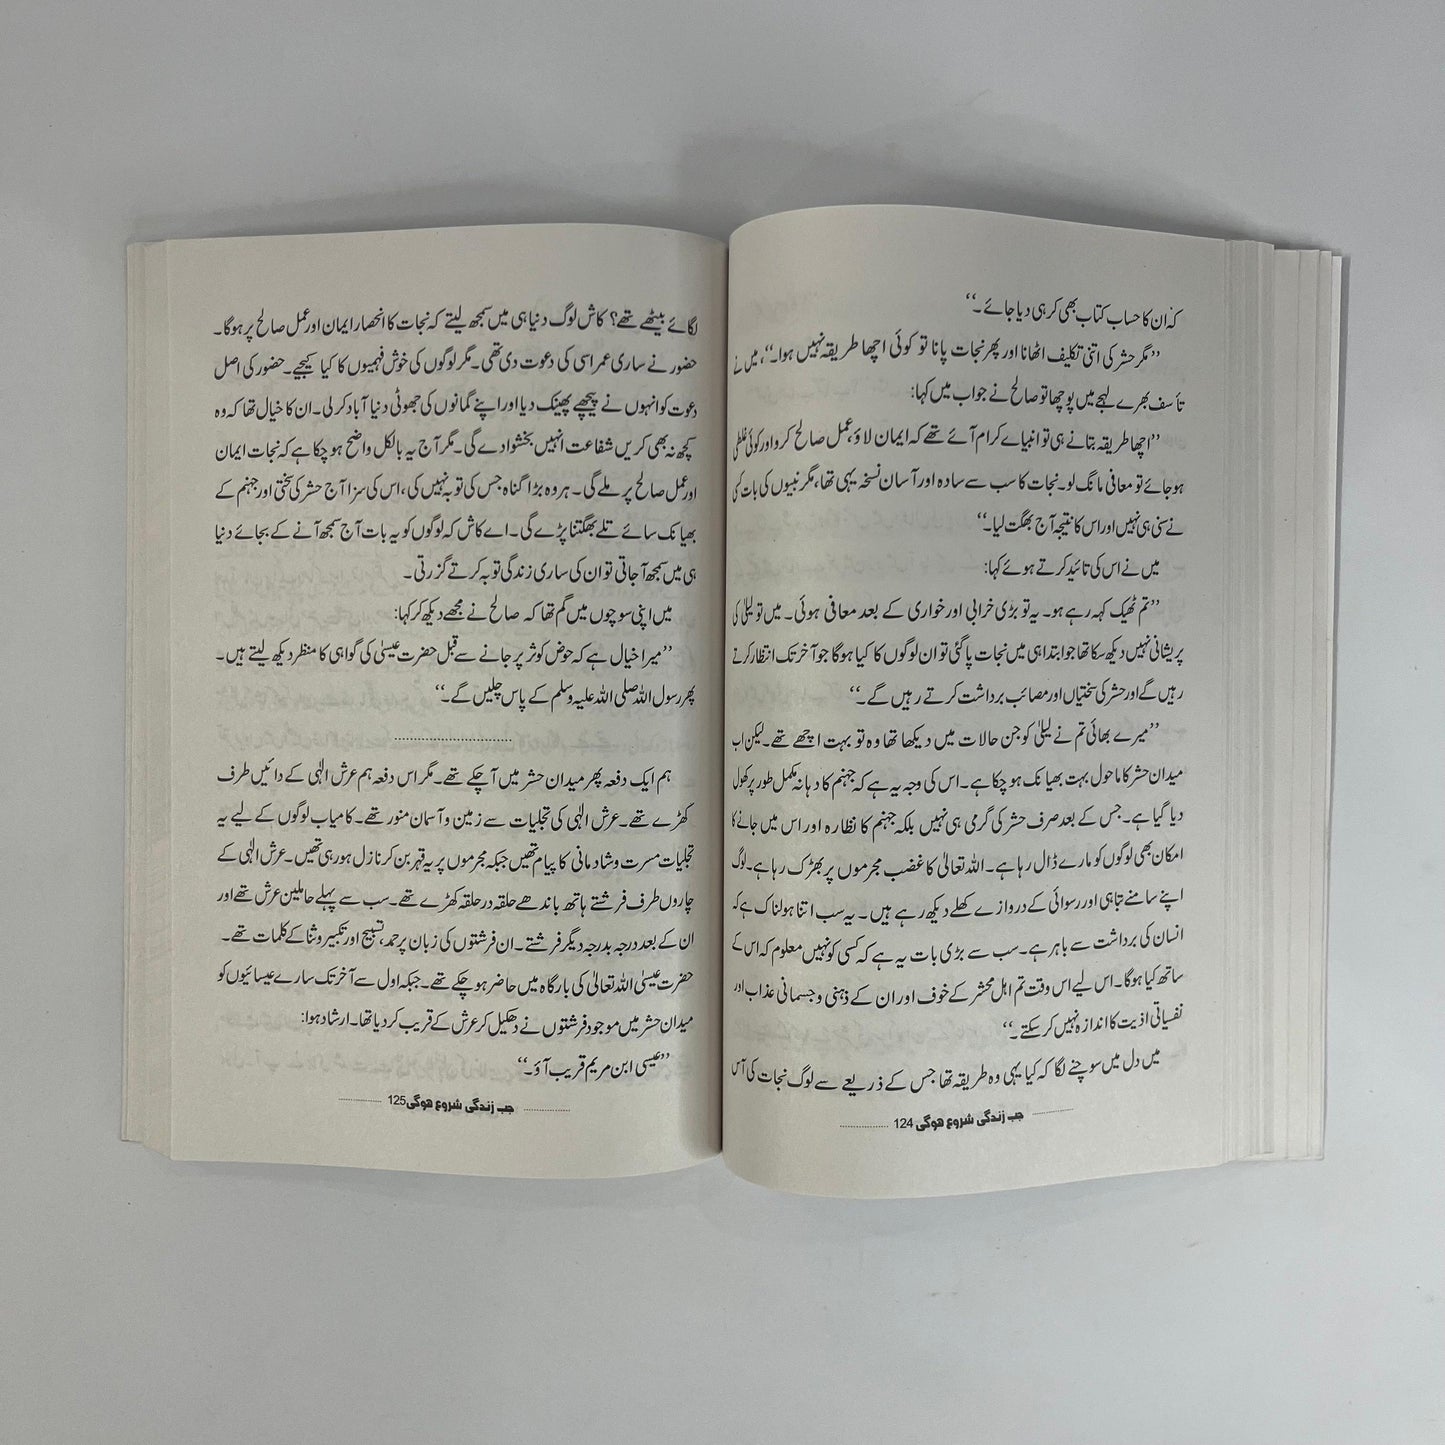 کہ ان کا حساب کتاب بھی کر ہی دیا جائے۔‘‘
’’مگر حشر کی اتنی تکلیف اٹھانا اور پھر نجات پانا تو کوئی اچھا طریقہ نہیں ہوا۔‘‘، میں نے
تأسف بھرے لہجے میں پوچھا تو صالح نے جواب میں کہا:
’’اچھا طریقہ بتانے ہی تو انبیائے کرام آئے تھے کہ ایمان لاؤ، عمل صالح کرو اور کوئی غلطی
ہو جائے تو معافی مانگ لو۔ نجات کا سب سے سادہ اور آسان نسخہ یہی تھا، مگر نبیوں کی بات کسی
نے سنی ہی نہیں اور اس کا نتیجہ آج بھگت لیا۔‘‘
میں نے اس کی تائید کرتے ہوئے کہا:
’’تم ٹھیک کہہ رہے ہو۔ یہ تو بڑی خرابی اور خواری کے بعد معافی ہوئی۔ میں تو لیلیٰ کی
پریشانی نہیں دیکھ سکا تھا جو ابتدا ہی میں نجات پا گئی تو ان لوگوں کا کیا ہوگا جو آخر تک انتظار کرتے
رہیں گے اور حشر کی سختیاں اور مصائب برداشت کرتے رہیں گے۔‘‘
’’میرے بھائی تم نے لیلیٰ کو جن حالات میں دیکھا تھا وہ تو بہت اچھے تھے۔ لیکن اب
میدان حشر کا ماحول بہت بھیانک ہو چکا ہے۔ اس کی وجہ یہ ہے کہ جہنم کا دہانہ مکمل طور پر کھول
دیا گیا ہے۔ جس کے بعد صرف حشر کی گرمی ہی نہیں بلکہ جہنم کا نظارہ اور اس میں جانے کا
امکان بھی لوگوں کو مارے ڈال رہا ہے۔ اللہ تعالیٰ کا غضب مجرموں پر بھڑک رہا ہے۔ لوگ
اپنے سامنے تباہی اور رسوائی کے دروازے کھلے دیکھ رہے ہیں۔ یہ سب اتنا ہولناک ہے کہ
انسان کی برداشت سے باہر ہے۔ سب سے بڑی بات یہ ہے کہ کسی کو نہیں معلوم کہ اس کے
ساتھ کیا ہوگا۔ اس لیے اس وقت تم اہل محشر کے خوف اور ان کے ذہنی و جسمانی عذاب اور
نفسیاتی اذیت کا اندازہ نہیں کر سکتے۔‘‘
میں دل میں سوچنے لگا کہ کیا یہی وہ طریقہ تھا جس کے ذریعے سے لوگ نجات کی آس
............ جب زندگی شروع ہوگی 124 ............
لگائے بیٹھے تھے؟ کاش لوگ دنیا ہی میں سمجھ لیتے کہ نجات کا انحصار ایمان اور عمل صالح پر ہوگا۔
حضور نے ساری عمر اسی کی دعوت دی تھی۔ مگر لوگوں کی خوش فہمیوں کا کیا کیجیے۔ حضور کی اصل
دعوت کو انہوں نے پیچھے پھینک دیا اور اپنے گمانوں کی جھوٹی دنیا آباد کر لی۔ ان کا خیال تھا کہ وہ
کچھ نہ بھی کریں شفاعت انہیں بخشوا دے گی۔ مگر آج یہ بالکل واضح ہو چکا ہے کہ نجات ایمان
اور عمل صالح پر ملے گی۔ ہر وہ بڑا گناہ جس کی توبہ نہیں کی، اس کی سزا آج حشر کی سختی اور جہنم کے
بھیانک سائے تلے بھگتنا پڑے گی۔ اے کاش کہ لوگوں کو یہ بات آج سمجھ آنے کے بجائے دنیا
ہی میں سمجھ آ جاتی تو ان کی ساری زندگی توبہ کرتے گزرتی۔
میں اپنی سوچوں میں گم تھا کہ صالح نے مجھے دیکھ کر کہا:
’’میرا خیال ہے کہ حوض کوثر پر جانے سے قبل حضرت عیسیٰ کی گواہی کا منظر دیکھ لیتے ہیں۔
پھر رسول اللہ صلی اللہ علیہ وسلم کے پاس چلیں گے۔‘‘
..............................
ہم ایک دفعہ پھر میدان حشر میں آ چکے تھے۔ مگر اس دفعہ ہم عرش الٰہی کے دائیں طرف
کھڑے تھے۔ عرش الٰہی کی تجلیات سے زمین و آسمان منور تھے۔ کامیاب لوگوں کے لیے یہ
تجلیات مسرت و شادمانی کا پیام تھیں جبکہ مجرموں پر یہ قہر بن کر نازل ہو رہی تھیں۔ عرش الٰہی کے
چاروں طرف فرشتے ہاتھ باندھے حلقہ در حلقہ کھڑے تھے۔ سب سے پہلے حاملین عرش تھے اور
ان کے بعد درجہ بدرجہ دیگر فرشتے۔ ان فرشتوں کی زبان پر حمد، تسبیح اور تکبیر و ثنا کے کلمات تھے۔
حضرت عیسیٰ اللہ تعالیٰ کی بارگاہ میں حاضر ہو چکے تھے۔ جبکہ اول سے آخر تک سارے عیسائیوں کو
میدان حشر میں موجود فرشتوں نے دھکیل کر عرش کے قریب کر دیا تھا۔ ارشاد ہوا:
’’عیسی ابن مریم قریب آؤ۔‘‘
............ جب زندگی شروع ہوگی 125 ............